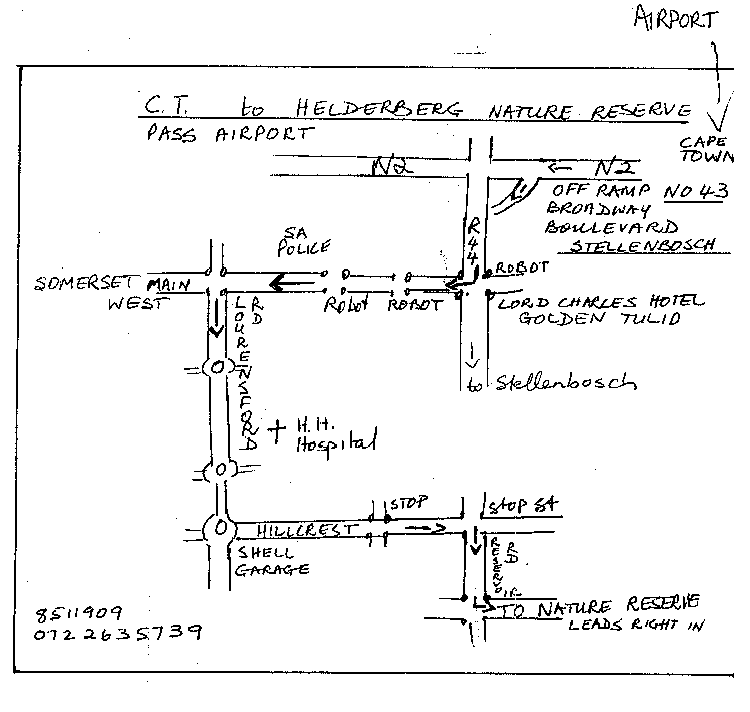 AIRPORT
C.T. to HELDERBERG NATURE RESERVE
PASS AIRPORT
CAPE TOWN
N2
N2
OFF RAMP NO 43
BROADWAY
BOULEVARD
STELLENBOSCH
R44
SA
POLICE
ROBOT
SOMERSET MAIN
WEST
RD
LOURENSFORD
Robot
ROBOT
LORD CHARLES HOTEL
GOLDEN TULID
to Stellenbosch
H.H.
Hospital
STOP
STOP St
HILLCREST
SHELL
GARAGE
RESERVOIR
RD
TO NATURE RESERVE
LEADS RIGHT IN
8511909
072 2635739